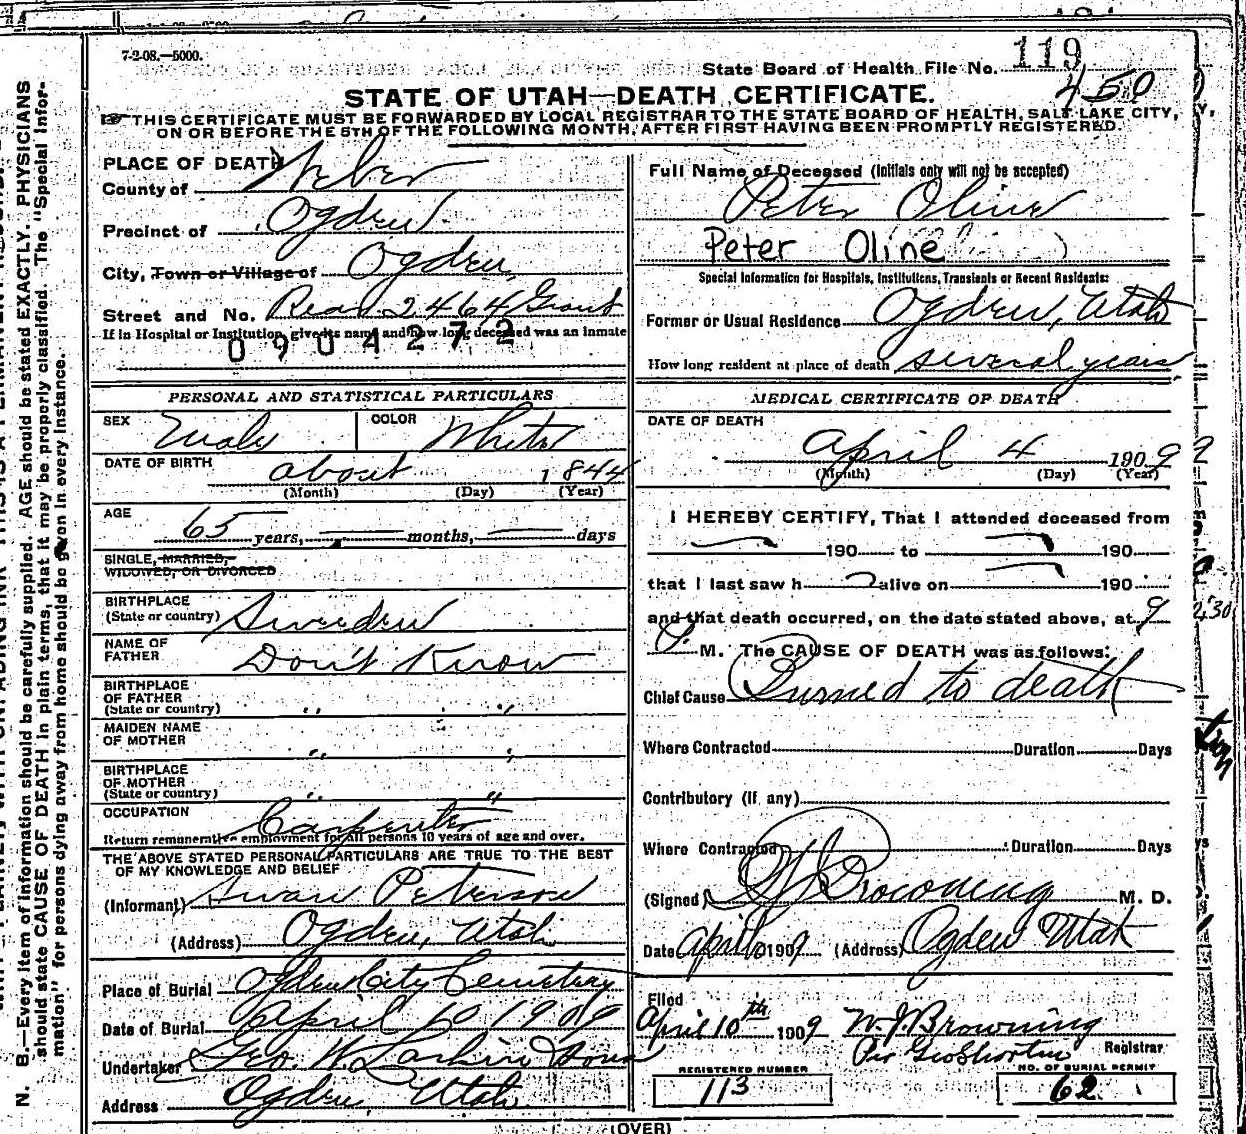 7-2-08.—5000.
State Board of Health File No. 119
450
STATE OF UTAH—DEATH CERTIFICATE.
THIS CERTIFICATE MUST BE FORWARDED BY LOCAL REGISTRAR TO THE STATE BOARD OF HEALTH, SALT LAKE CITY,
ON OR BEFORE THE 5TH OF THE FOLLOWING MONTH, AFTER FIRST HAVING BEEN PROMPTLY REGISTERED.
PLACE OF DEATH
County of Weber
Precinct of Ogden
City, Town or Village of Ogden
Street and No. Rear 2464 Grant
If in Hospital or Institution, give its name and how long deceased was an inmate
0904272
PERSONAL AND STATISTICAL PARTICULARS
SEX Male COLOR White
DATE OF BIRTH about 1844
(Month) (Day) (Year)
AGE
65 years, months, days
SINGLE, MARRIED,
WIDOWED, OR DIVORCED
BIRTHPLACE
(State or country) Sweden
NAME OF
FATHER Don't Know
BIRTHPLACE
OF FATHER
(State or country) " "
MAIDEN NAME
OF MOTHER " "
BIRTHPLACE
OF MOTHER
(State or country) " "
OCCUPATION Carpenter
Return remunerative employment for all persons 10 years of age and over.
THE ABOVE STATED PERSONAL PARTICULARS ARE TRUE TO THE BEST
OF MY KNOWLEDGE AND BELIEF
(Informant) Swan Peterson
(Address) Ogden, Utah
Place of Burial Ogden City Cemetery
Date of Burial April 10 1909
Undertaker Geo. W. Larkin Sons
Address Ogden, Utah
Full Name of Deceased (Initials only will not be accepted)
Peter Oline
Peter Oline
Special Information for Hospitals, Institutions, Transients or Recent Residents:
Former or Usual Residence Ogden, Utah
How long resident at place of death several years
MEDICAL CERTIFICATE OF DEATH
DATE OF DEATH
April 4 1909
(Month) (Day) (Year)
I HEREBY CERTIFY, That I attended deceased from
190 to 190
that I last saw h alive on 190
and that death occurred, on the date stated above, at 9
P. M. The CAUSE OF DEATH was as follows:
Chief Cause Burned to death
Where Contracted Duration Days
Contributory (if any)
Where Contracted Duration Days
(Signed) Browning M. D.
Date April 1909 (Address) Ogden Utah
Filed
April 10th 1909 W. J. Browning
Per Geo Shorten Registrar
REGISTERED NUMBER
113
NO. OF BURIAL PERMIT
62
(OVER)
N. B.—Every item of information should be carefully supplied. AGE should be stated EXACTLY. PHYSICIANS
should state CAUSE OF DEATH in plain terms, that it may be properly classified. The "Special Infor-
mation" for persons dying away from home should be given in every instance.
2:30